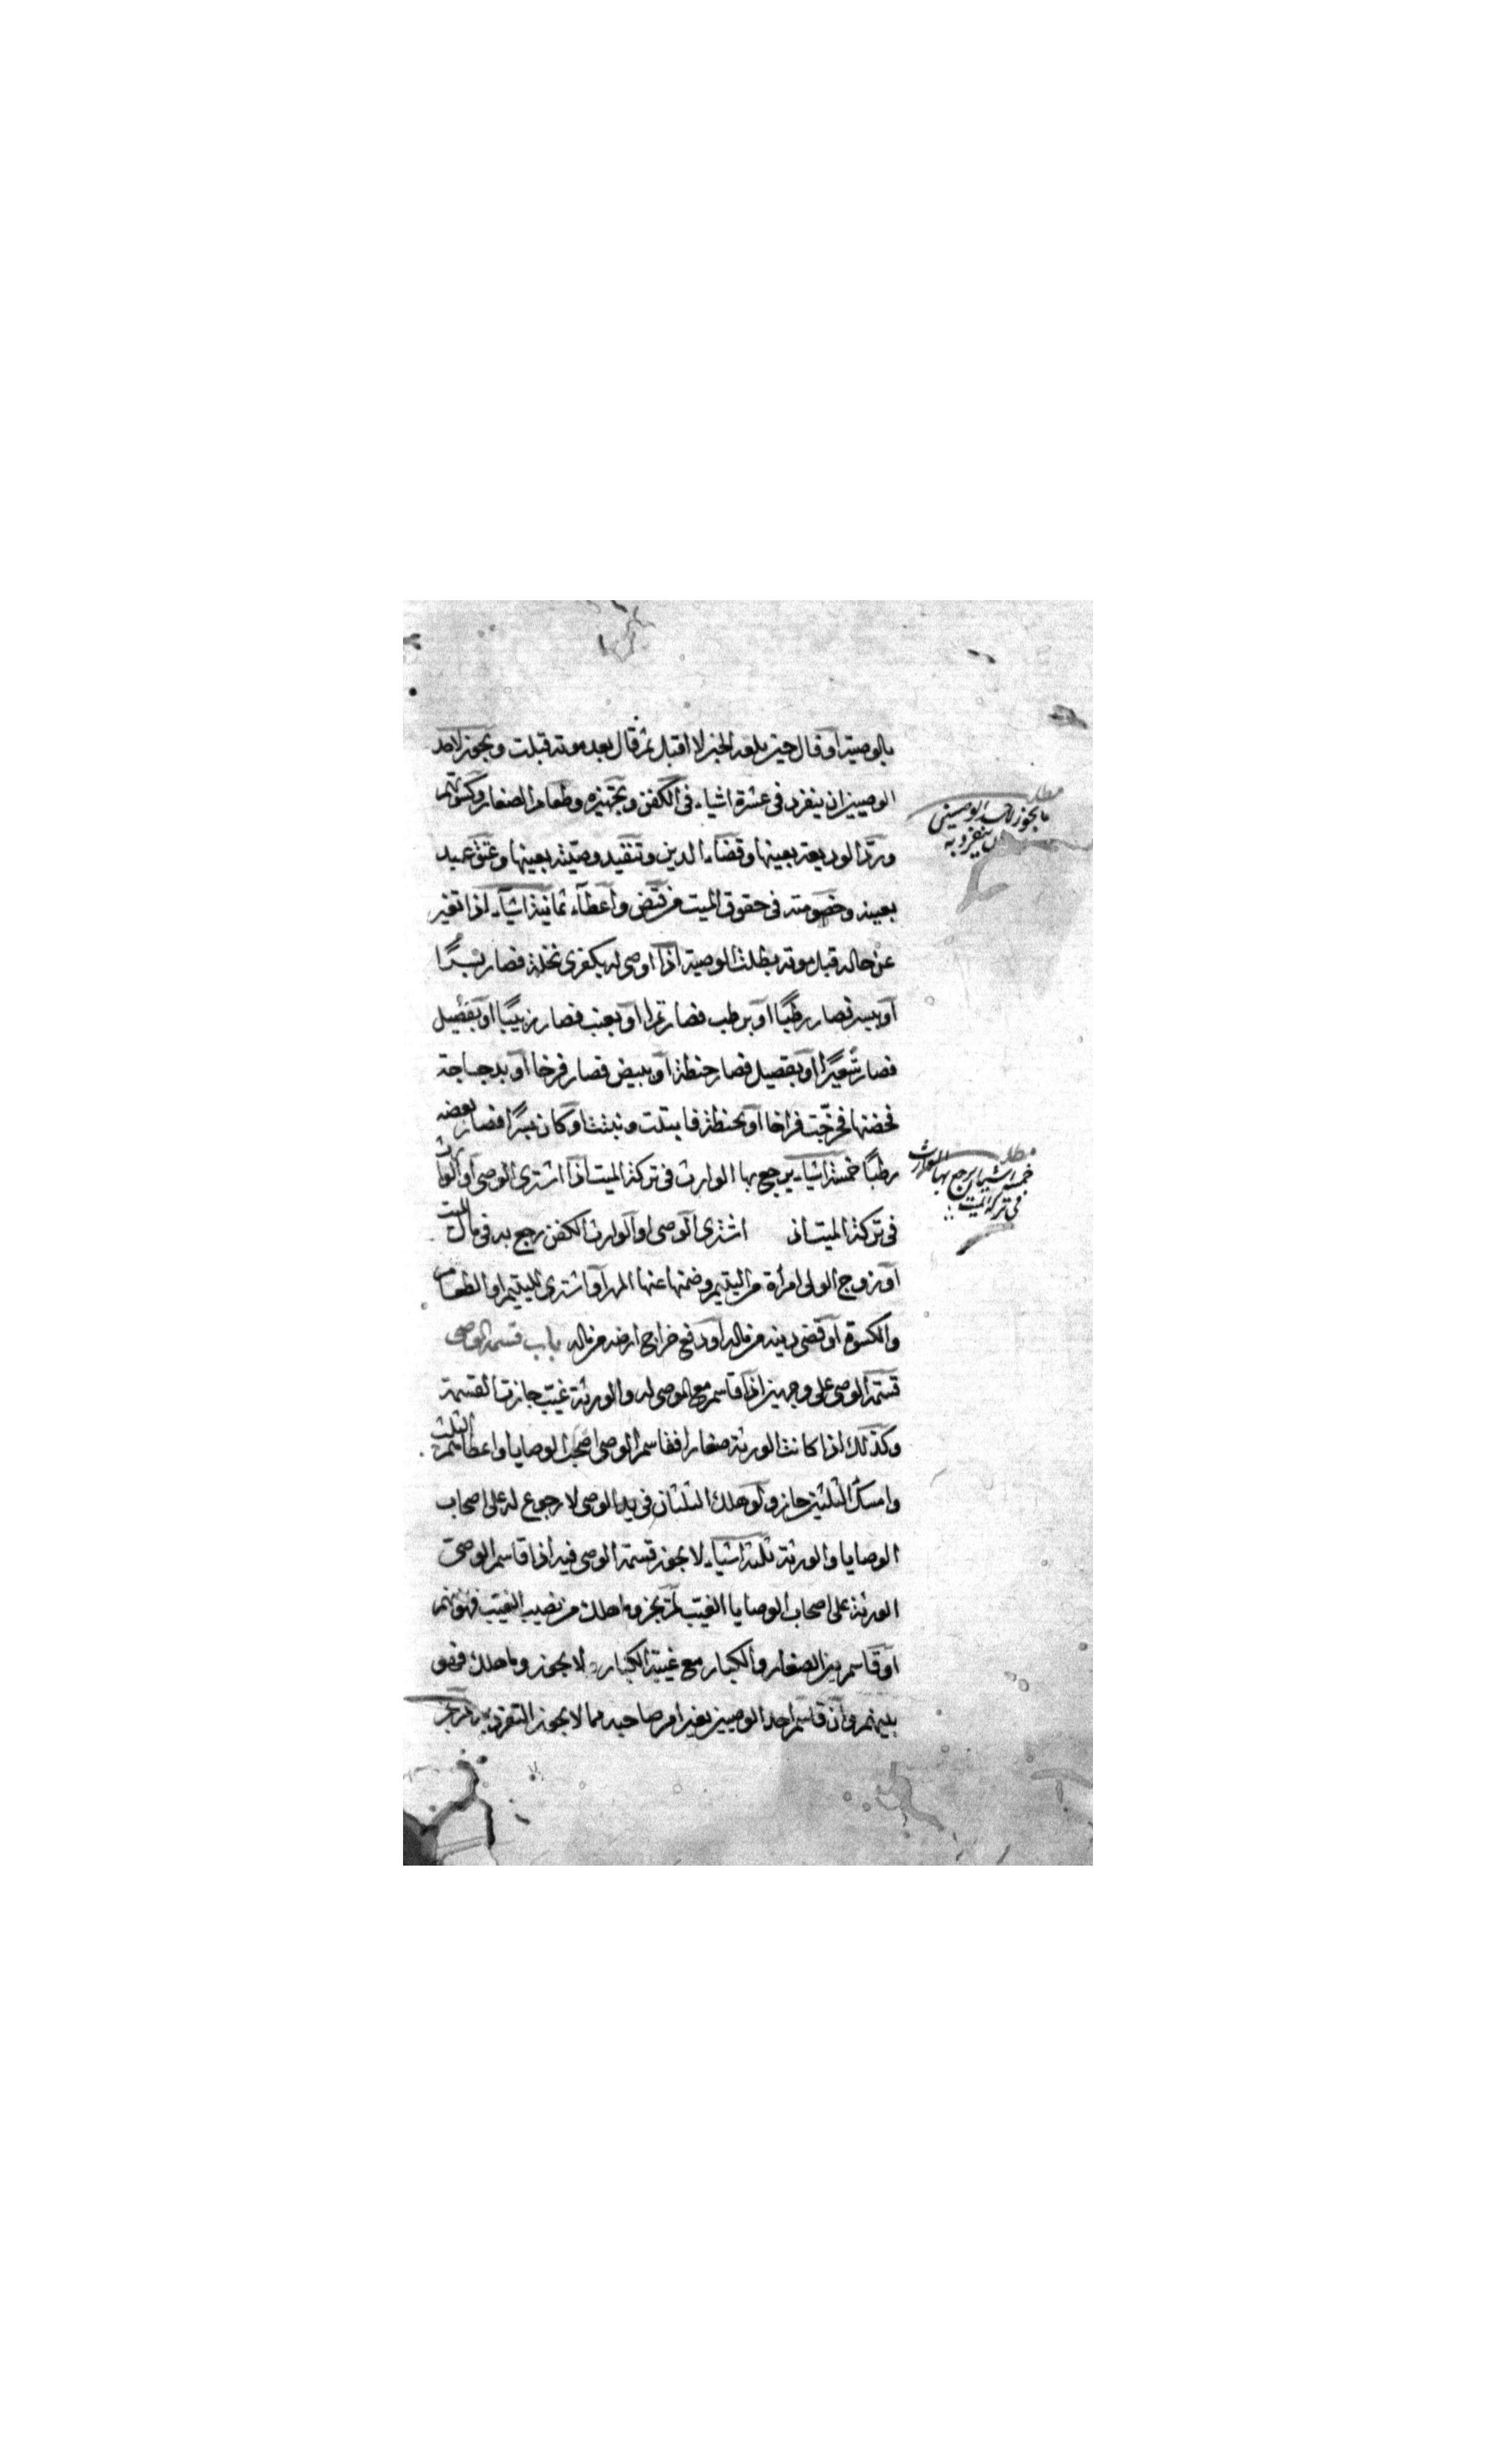 بالوصية او قال حين بلغه الخبر لا اقبل ثم قال بعد موته قبلت ويجوز لاحد
الوصيين ان ينفرد في عشرة اشياء في الكفن وتجهيزه وطعام الصغار وكسوتهم
ورد الوديعة بعينها وقضاء الدين وتنفيد وصيته بعينها وعتق عبد
بعينه وخصومته في حقوق الميت من قبض واعطاء ثمانية اشياء اذا تغير
عن حاله قبل موته بطلت الوصية اذا اوصى له بكفرى نخلة فصار بسرا
او ببسر فصار رطبا او برطب فصار تمرا او بعنب فصار زبيبا او بقصيل
فصار شعيرا او بقصيل فصار حنطة او ببيض فصار فرخا او بدجاجة
فحضنها فخرجت فراخا او بحنطة فابتلت ونبتت او كان بسرا فصار بعضه
رطبا خمسة اشياء يرجع بها الوارث في تركة الميت اذا اشترى الوصي او الوارث
في تركة الميت ان اشترى الوصي او الوارث الكفن رجع به في مال الميت
او زوج الولي امرأة من اليتيم وضمنها عنها المهر او اشترى لليتيم او الطعام
والكسوة او قضى دينه من ماله او دفع خراج ارضه من ماله باب قسمة الوصي
قسمة الوصي على وجهين اذا قاسم مع الموصى له والورثة غيب جازت القسمة
وكذلك اذا كانت الورثة صغارا فقاسم الوصي اصحاب الوصايا واعطاهم الثلث
وامسك الثلثين جاز ولو هلك الثلثان في يد الوصي لا رجوع له على اصحاب
الوصايا والورثة ثلثة اشياء لا يجوز قسمة الوصي فيه اذا قاسم الوصي
الورثة على اصحاب الوصايا الغيب لم يجز وما هلك من نصيب الغيب فهو بينهم
او قاسم بين الصغار والكبار مع غيبة الكبار لا يجوز وما هلك فهو
بينهم وان قاسم احد الوصيين بغير امر صاحبه مما لا يجوز التفرد به لم يجز
مطلب
ما يجوز لاحد الوصيين
ان ينفرد به
مطلب
خمسة اشياء يرجع بها الوارث
في تركة الميت